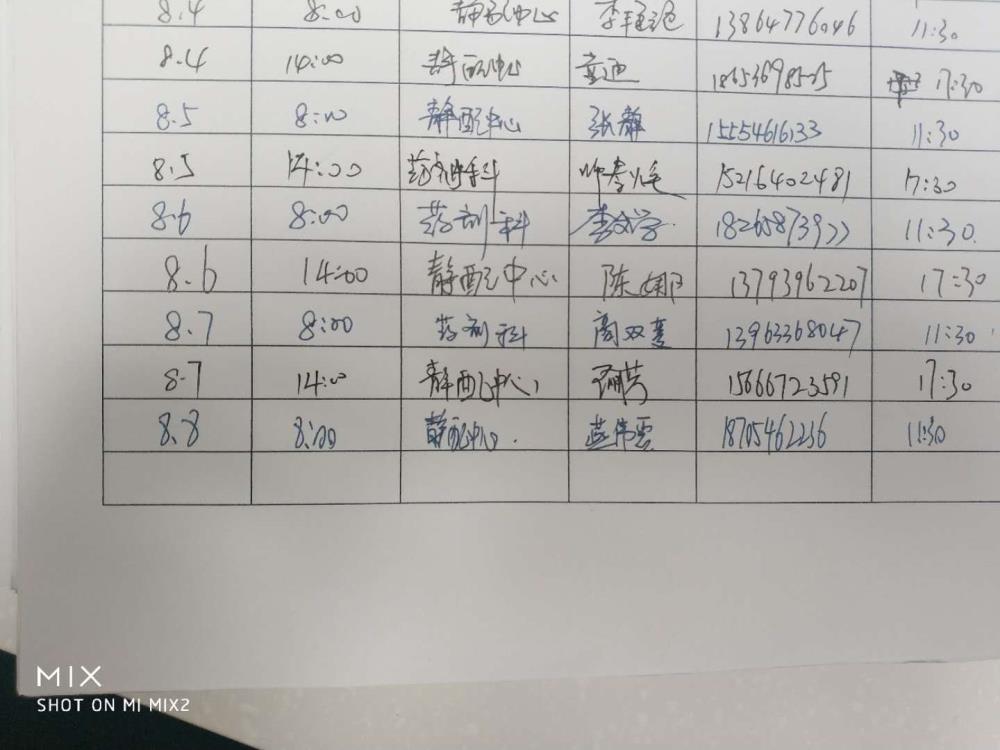 8.4 8:00 静配中心 13864776046 11:30
8.4 14:00 静配中心 童迪 17:30
8.5 8:00 静配中心 张静 15554616133 11:30
8.5 14:00 15216402481 17:30
8.6 8:00 药剂科 李文学 11:30
8.6 14:00 静配中心 陈 13793962207 17:30
8.7 8:00 药剂科 高双 13963368047 11:30
8.7 14:00 静配中心 15866723591 17:30
8.8 8:00 静配中心 伟雲 18705462236 11:30
MIX
SHOT ON MI MIX2